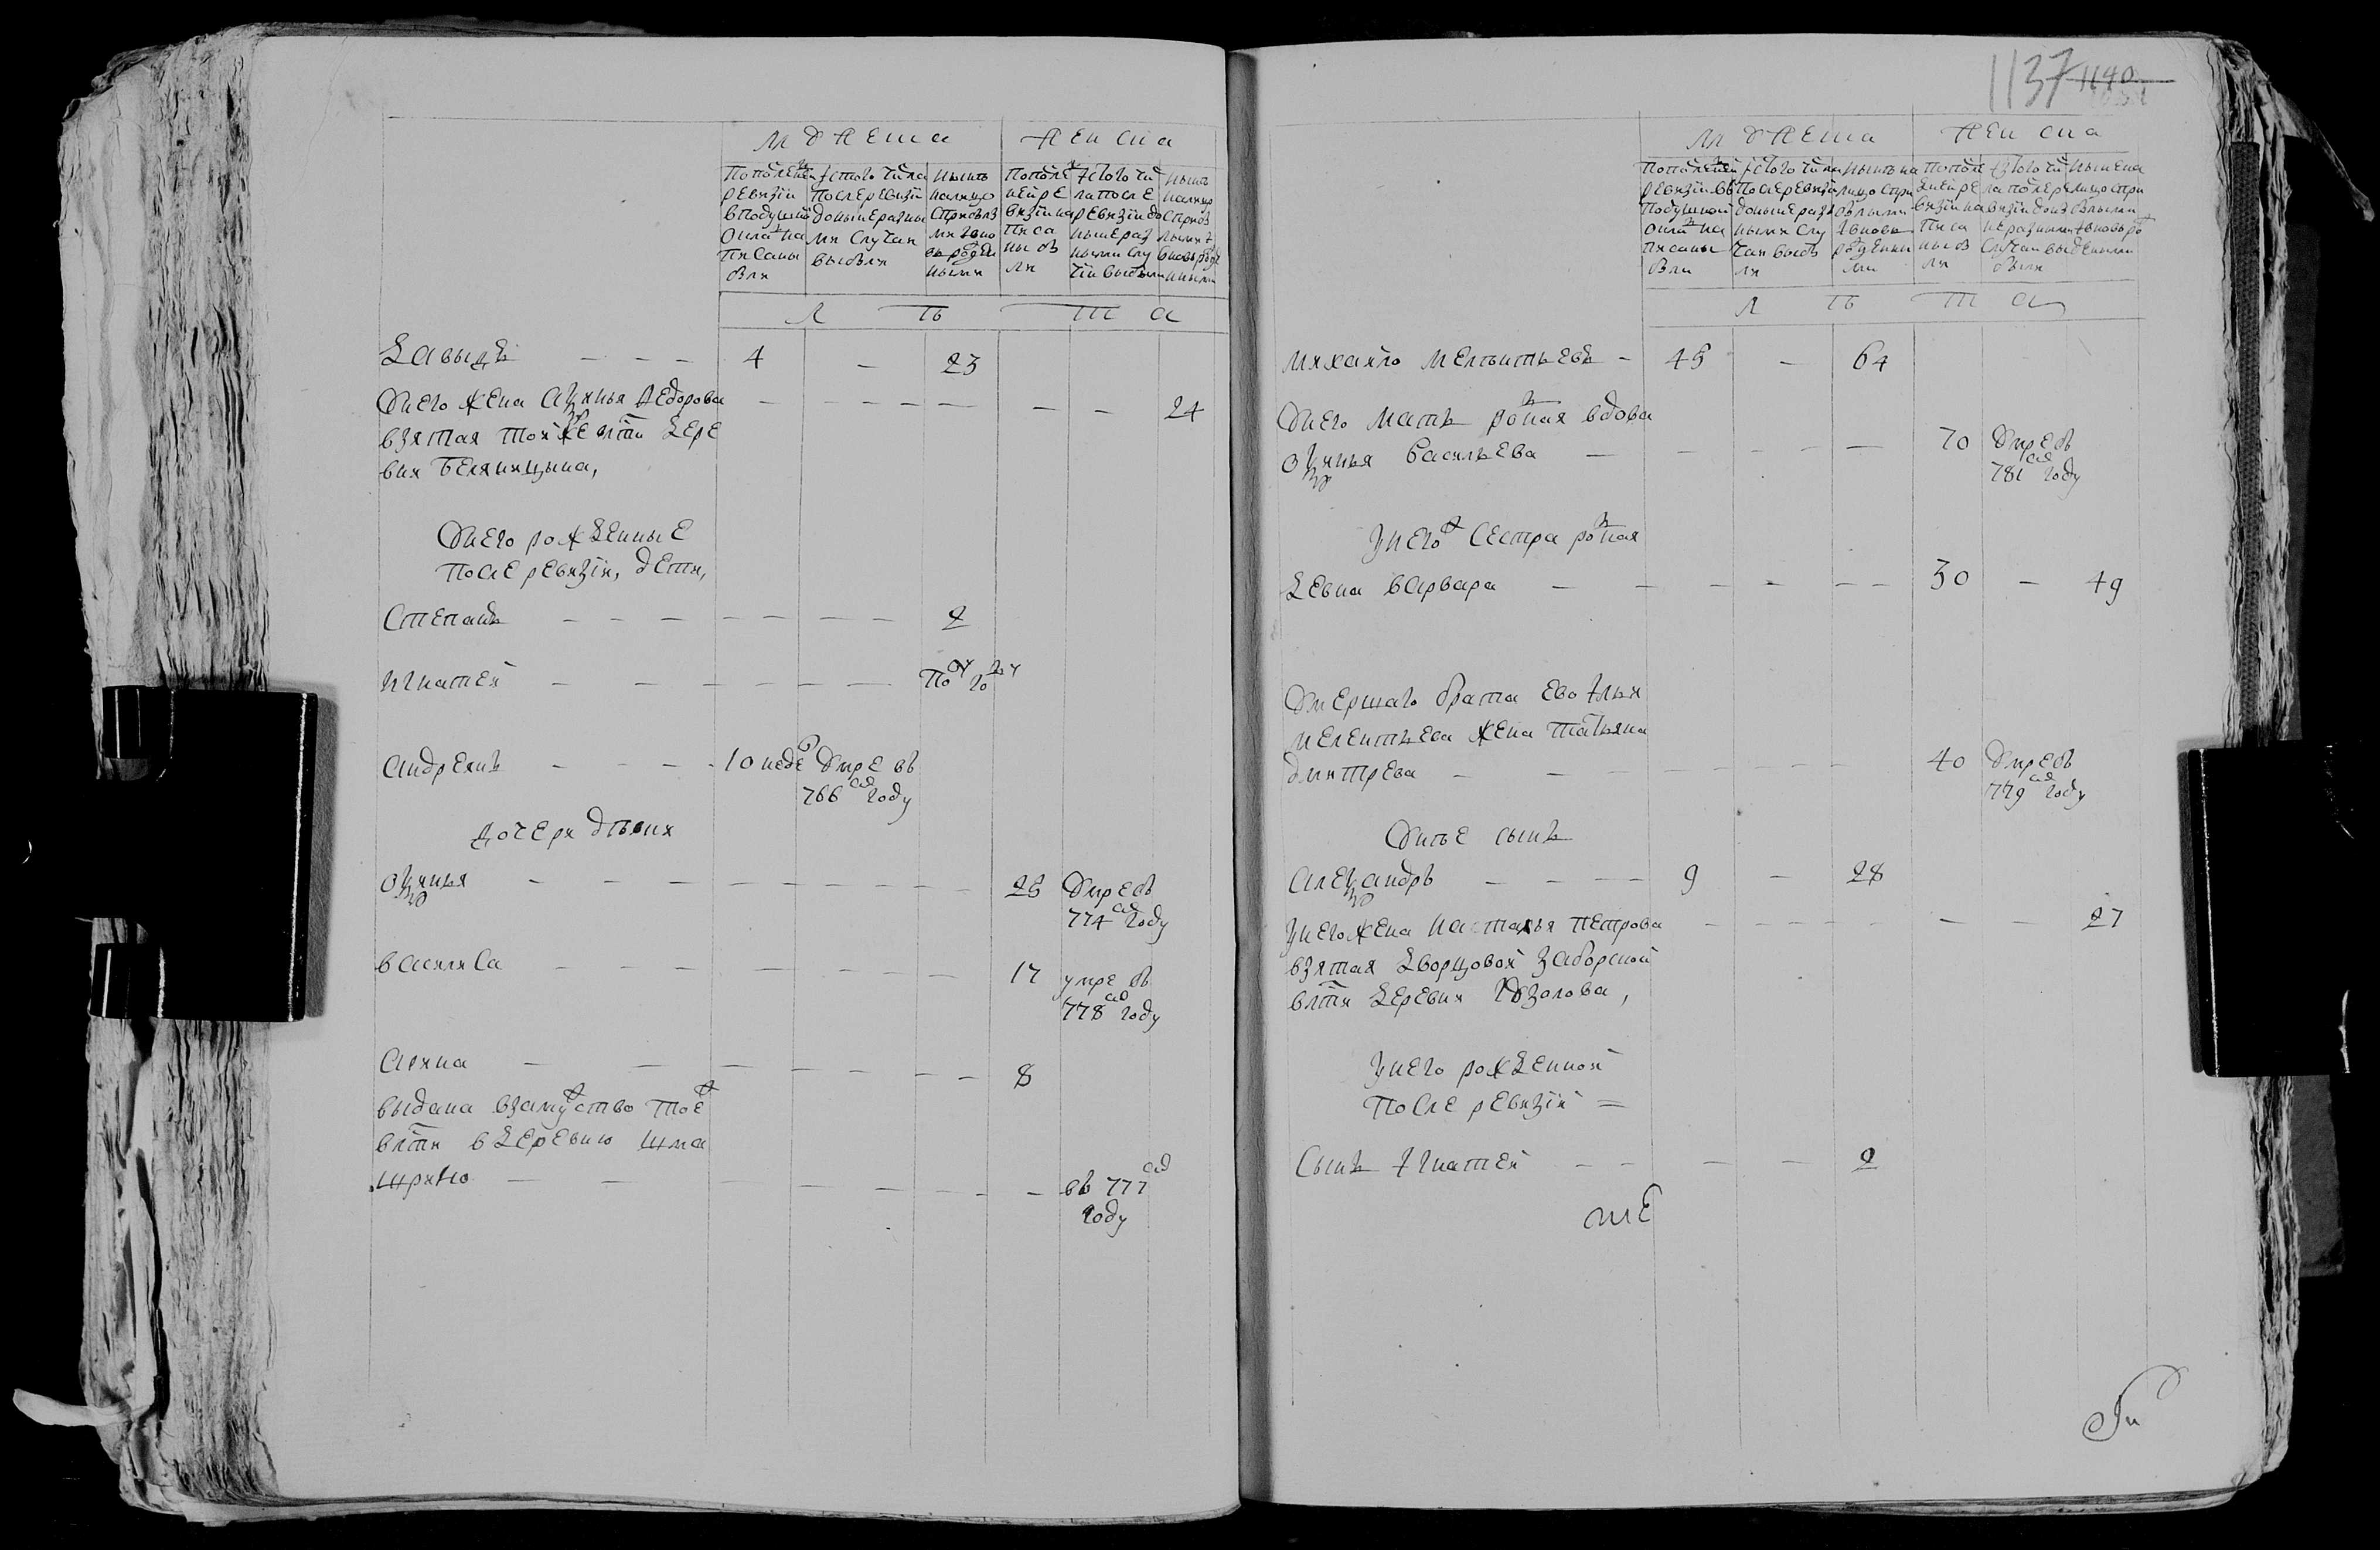 мужеска женска
По последней ревизии в подушной оклад написаны были
Ис того числа после ревизии до ныне разными случаи выбыли
Ныне на лицо с прибылыми и вновь рожденными
По последней ревизии написаны были
Ис того числа после ревизии до ныне разными случаи выбыли
Ныне на лицо с прибылыми и вновь рожденными
л ѣ т а
Давыдъ — — — 4 — 23
У него жена аѯинья Федорова — — — — — — — 24
взятая тойже влти дере
вни
У него рожденные
после ревизiи, дети,
Степанъ — — — — — — — — 2
Игнатей — — — — — — полу году
андреянъ — — — 10 недель умре въ
766м году
дочери
оѯинья — — — — — — — — — 25 умре въ
774м году
василиса — — — — — — — 17 умре въ
778м году
арина — — — — — — — 8
выдана взамужство тоеж
влти в деревню
— — — — — — — — въ 777м
году
1137 1140
мужеска женска
По последней ревизии въ подушной оклад написаны были
Ис того числа после ревизии до ныне разными случаи выбыли
Ныне на лицо с прибылыми и вновь рожденными
По последней ревизии написаны были
Ис того числа после ревизии до ныне разными случаи выбыли
Ныне на лицо с прибылыми и вновь рожденными
л ѣ т а
михайло мелентьевъ — 45 — 64
У него мать родная вдова
оѯинья васильева — — — — — 70 умре въ
781м году
У него ж сестра родная
девка варвара — — — — — — 30 — 49
Умершаго брата ево Ильи
мелентьева жена татьяна
дмитрева — — — — — — — — 40 умре въ
779м году
У нее сынъ
алеѯандръ — — — — 9 — 28
У него жена настасья петрова — — — — — — — 27
взятая дворцовой заборской
влти деревни
У него рожденной
после ревизiи =
Сынъ Игнатей — — — — 2